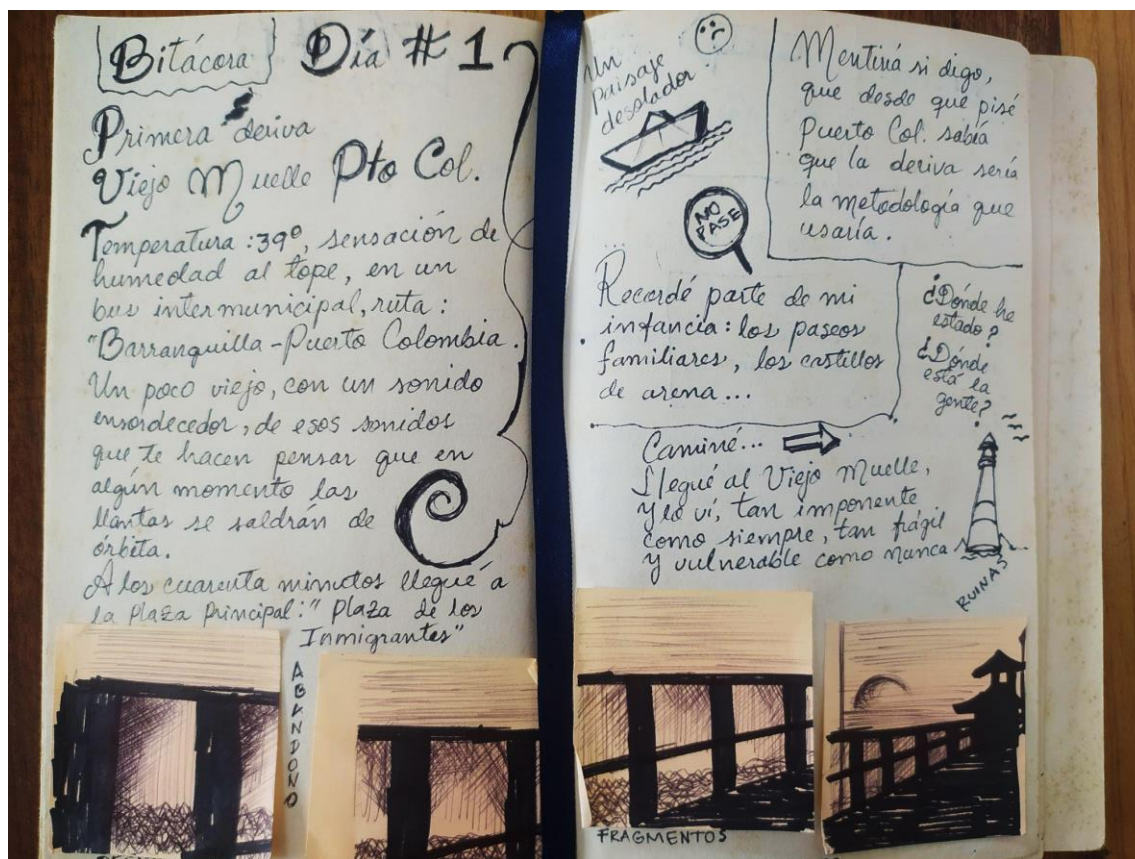 Bitácora Día #1
Primera deriva
Viejo Muelle Pto Col.
Temperatura: 39°, sensación de
humedad al tope, en un
bus intermunicipal, ruta:
"Barranquilla-Puerto Colombia.
Un poco viejo, con un sonido
ensordecedor, de esos sonidos
que te hacen pensar que en
algún momento las
llantas se saldrán de
órbita.
A los cuarenta minutos llegué a
la Plaza Principal:" Plaza de los
Inmigrantes"
ABANDONO
Un
paisaje
desolador
NO
PASE
Mentiría si digo,
que desde que pisé
Puerto Col. sabía
que la deriva sería
la metodología que
usaría.
Recordé parte de mi
infancia: los paseos
familiares, los castillos
de arena...
¿Dónde he
estado?
¿Dónde
está la
gente?
Caminé...
Llegué al Viejo Muelle,
y lo ví, tan imponente
como siempre, tan frágil
y vulnerable como nunca
RUINAS
FRAGMENTOS